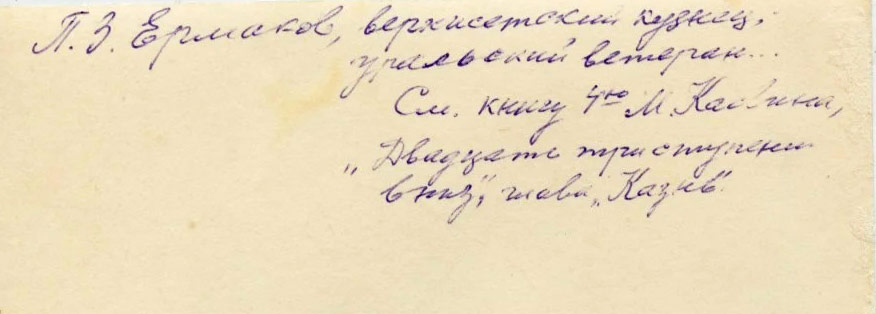 П. З. Ермаков, верхисетский кузнец;
уральский ветеран...
См. книгу 4ю М. Касвина,
„Двадцать три ступени
вниз", глава „Казнь".